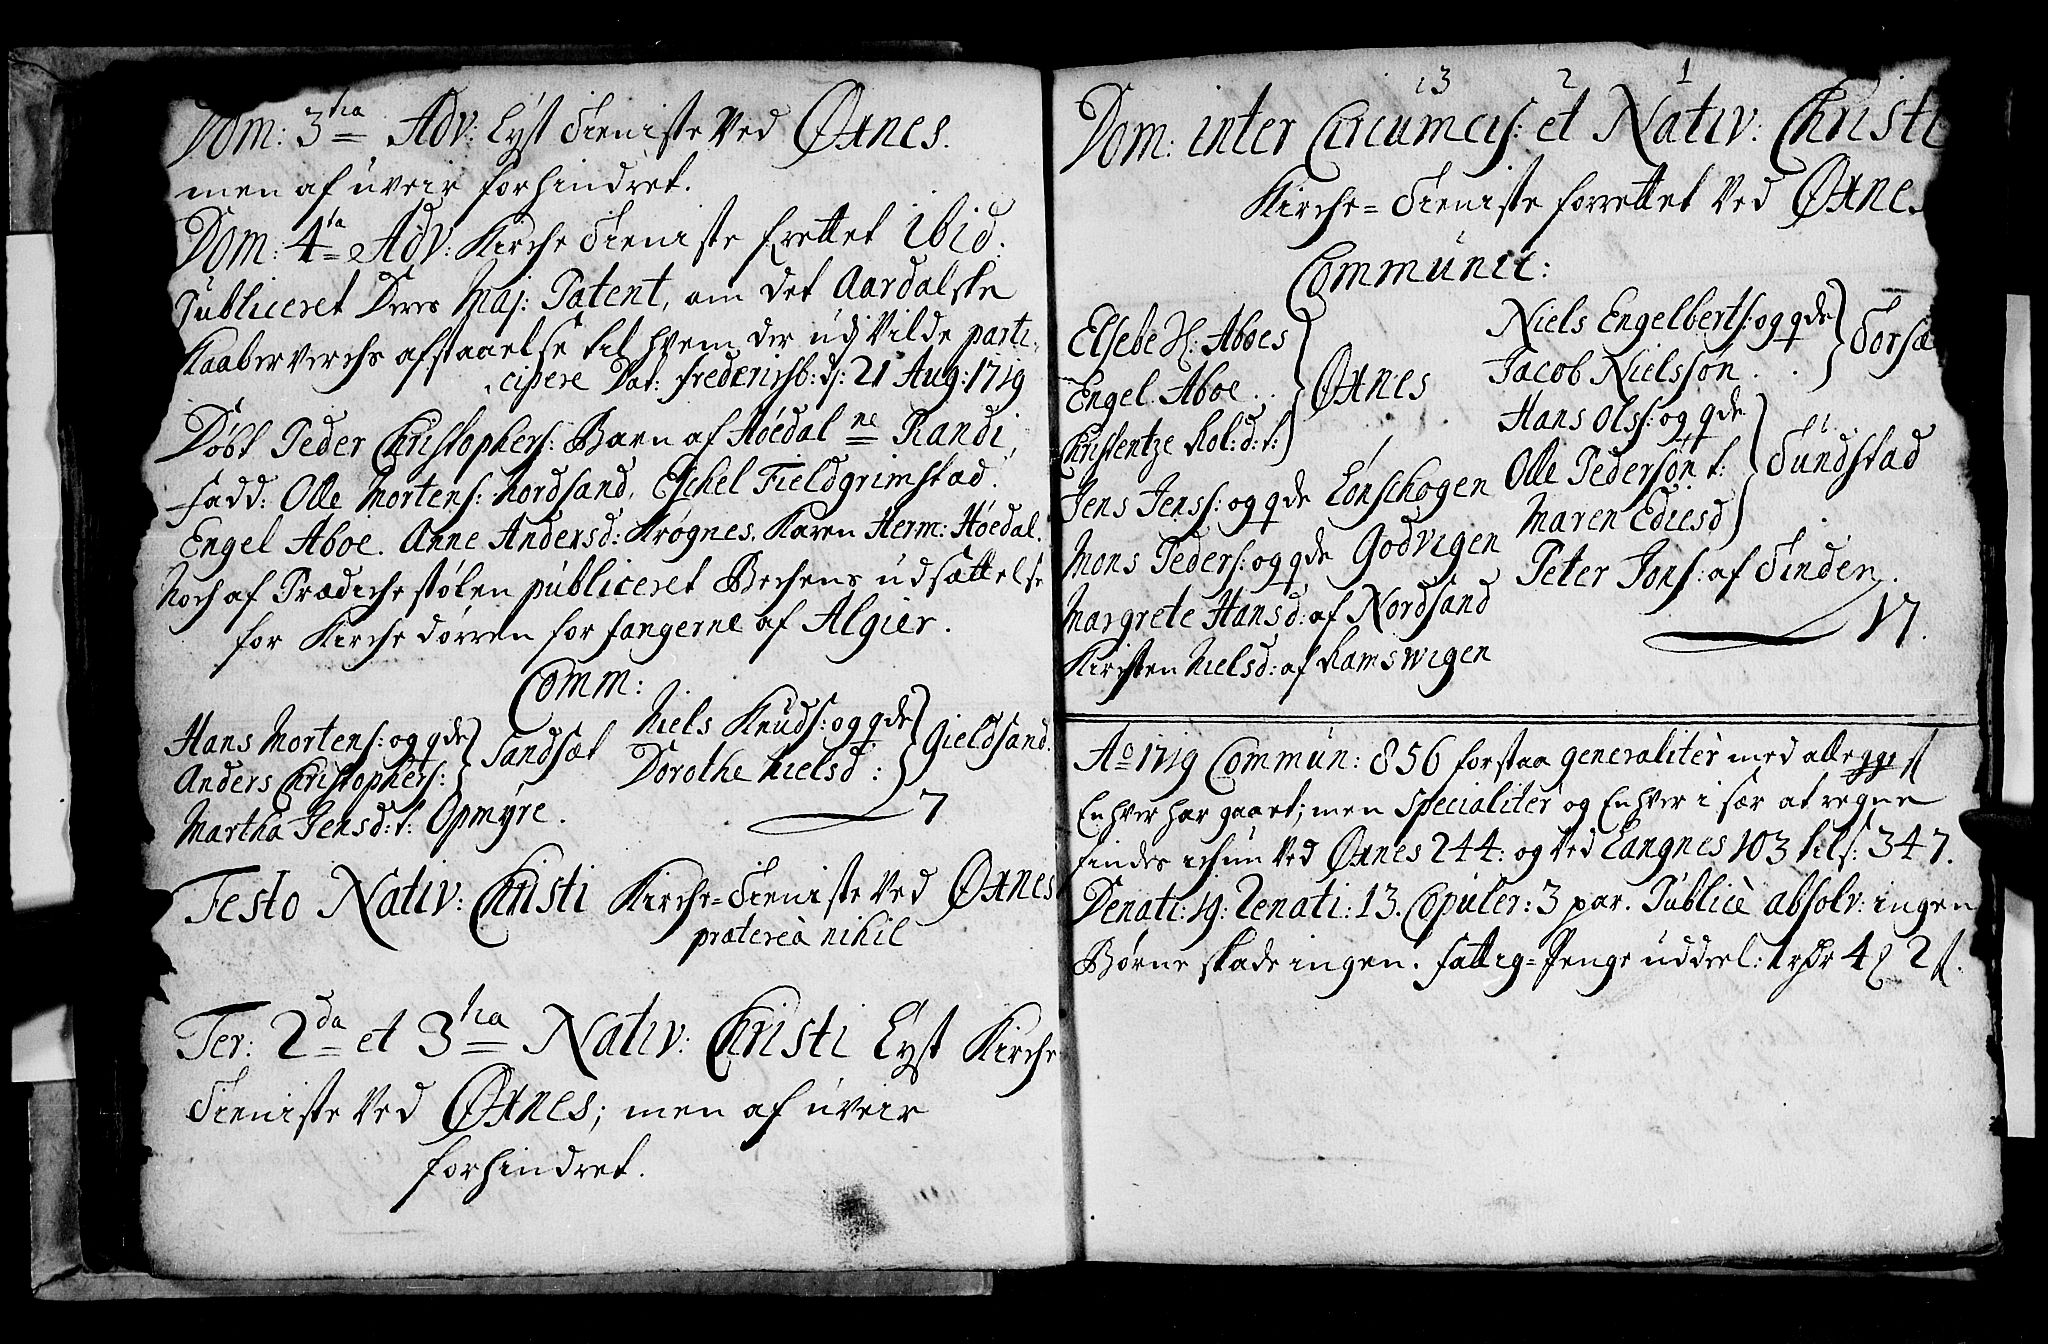 Dom: 3tia Adv: Lyst Tieniste Ved Øxnes.
men af uveir forhindret.
Dom: 4ta Adv: Kirche Tieniste f'rettet ibid:
Publiceret Deres Maj: Patent, om det Aardalske
Kaaberverchs afstaaelse til hvem der udj Vilde parti-
cipere Dat: Frederichsb: ds: 21 Aug: 1719
Døbt Peder Christophers: Barn af Høedal ne Randi
Fadd: Olle Mortens: Nordsand, Eschel Fieldgrimstad.
Engel Aboe. Anne Andersd: Krøgnes, Karen Herm: Høedal.
Noch af Prædichestolen publiceret Bechens udsættelse
for Kirchedørren for fangerne af Algier.
Comm:
Hans Mortens: og qde
Anders Christophers:
Sandsæt
Martha Jensd: t: Opmyre.
Niels Knuds: og qde
Dorothe Nielsd:
Gieldsand.
7
Festo Nativ: Christi Kirche-Tieniste Ved Øxnes
præterea nihil
Fer: 2da et 3tia Nativ: Christi Lyst Kirche
Tieniste Ved Øxnes; men af uveir
forhindret.
3 2 1
Dom: inter Circumcis: et Nativ: Christi
Kirche-Tieniste forrettet Ved Øxnes
Communic:
Elsebe Hl: Aboes
Engel Aboe.
Christentze Rol: d: t:
Øxnes
Jens Jenss: og qde Lonschogen
Mons Peders: og qde Godvigen
Margrete Hansd: af Nordsand
Kirsten Nielsd: af Ramswigen
Niels Engelberts: og qde
Jacob Nielsson
Torsæ
Hans Olss: og qde
Olle Pederson t:
Maren Ediesd
Tundstad
Peter Jons: af Tinden.
17.
Ao 1719 Commun: 856 forstaa generaliter med alle
Enhver har gaaet; men specialiter og Enhver i sær at regne
findes ichun Ved Øxnes 244: og Ved Langnes 103 tils: 347.
Denati: 19. Renati: 13. Copuler: 3 par. Publice absolv: ingen
Børne skade ingen. Fattig-Penge uddeel: 1 rdr 4 2